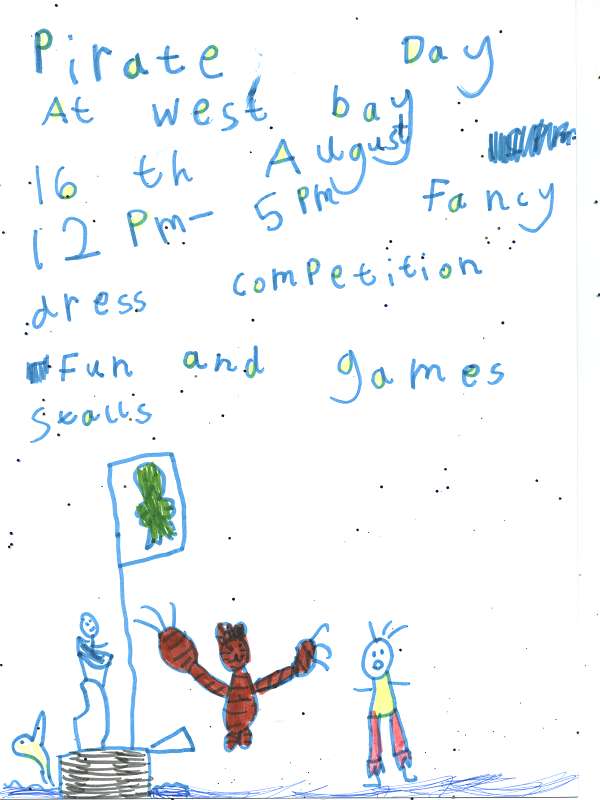 Pirate Day
At west bay
16 th August
12 Pm- 5 Pm Fancy
dress competition
Fun and games
stalls